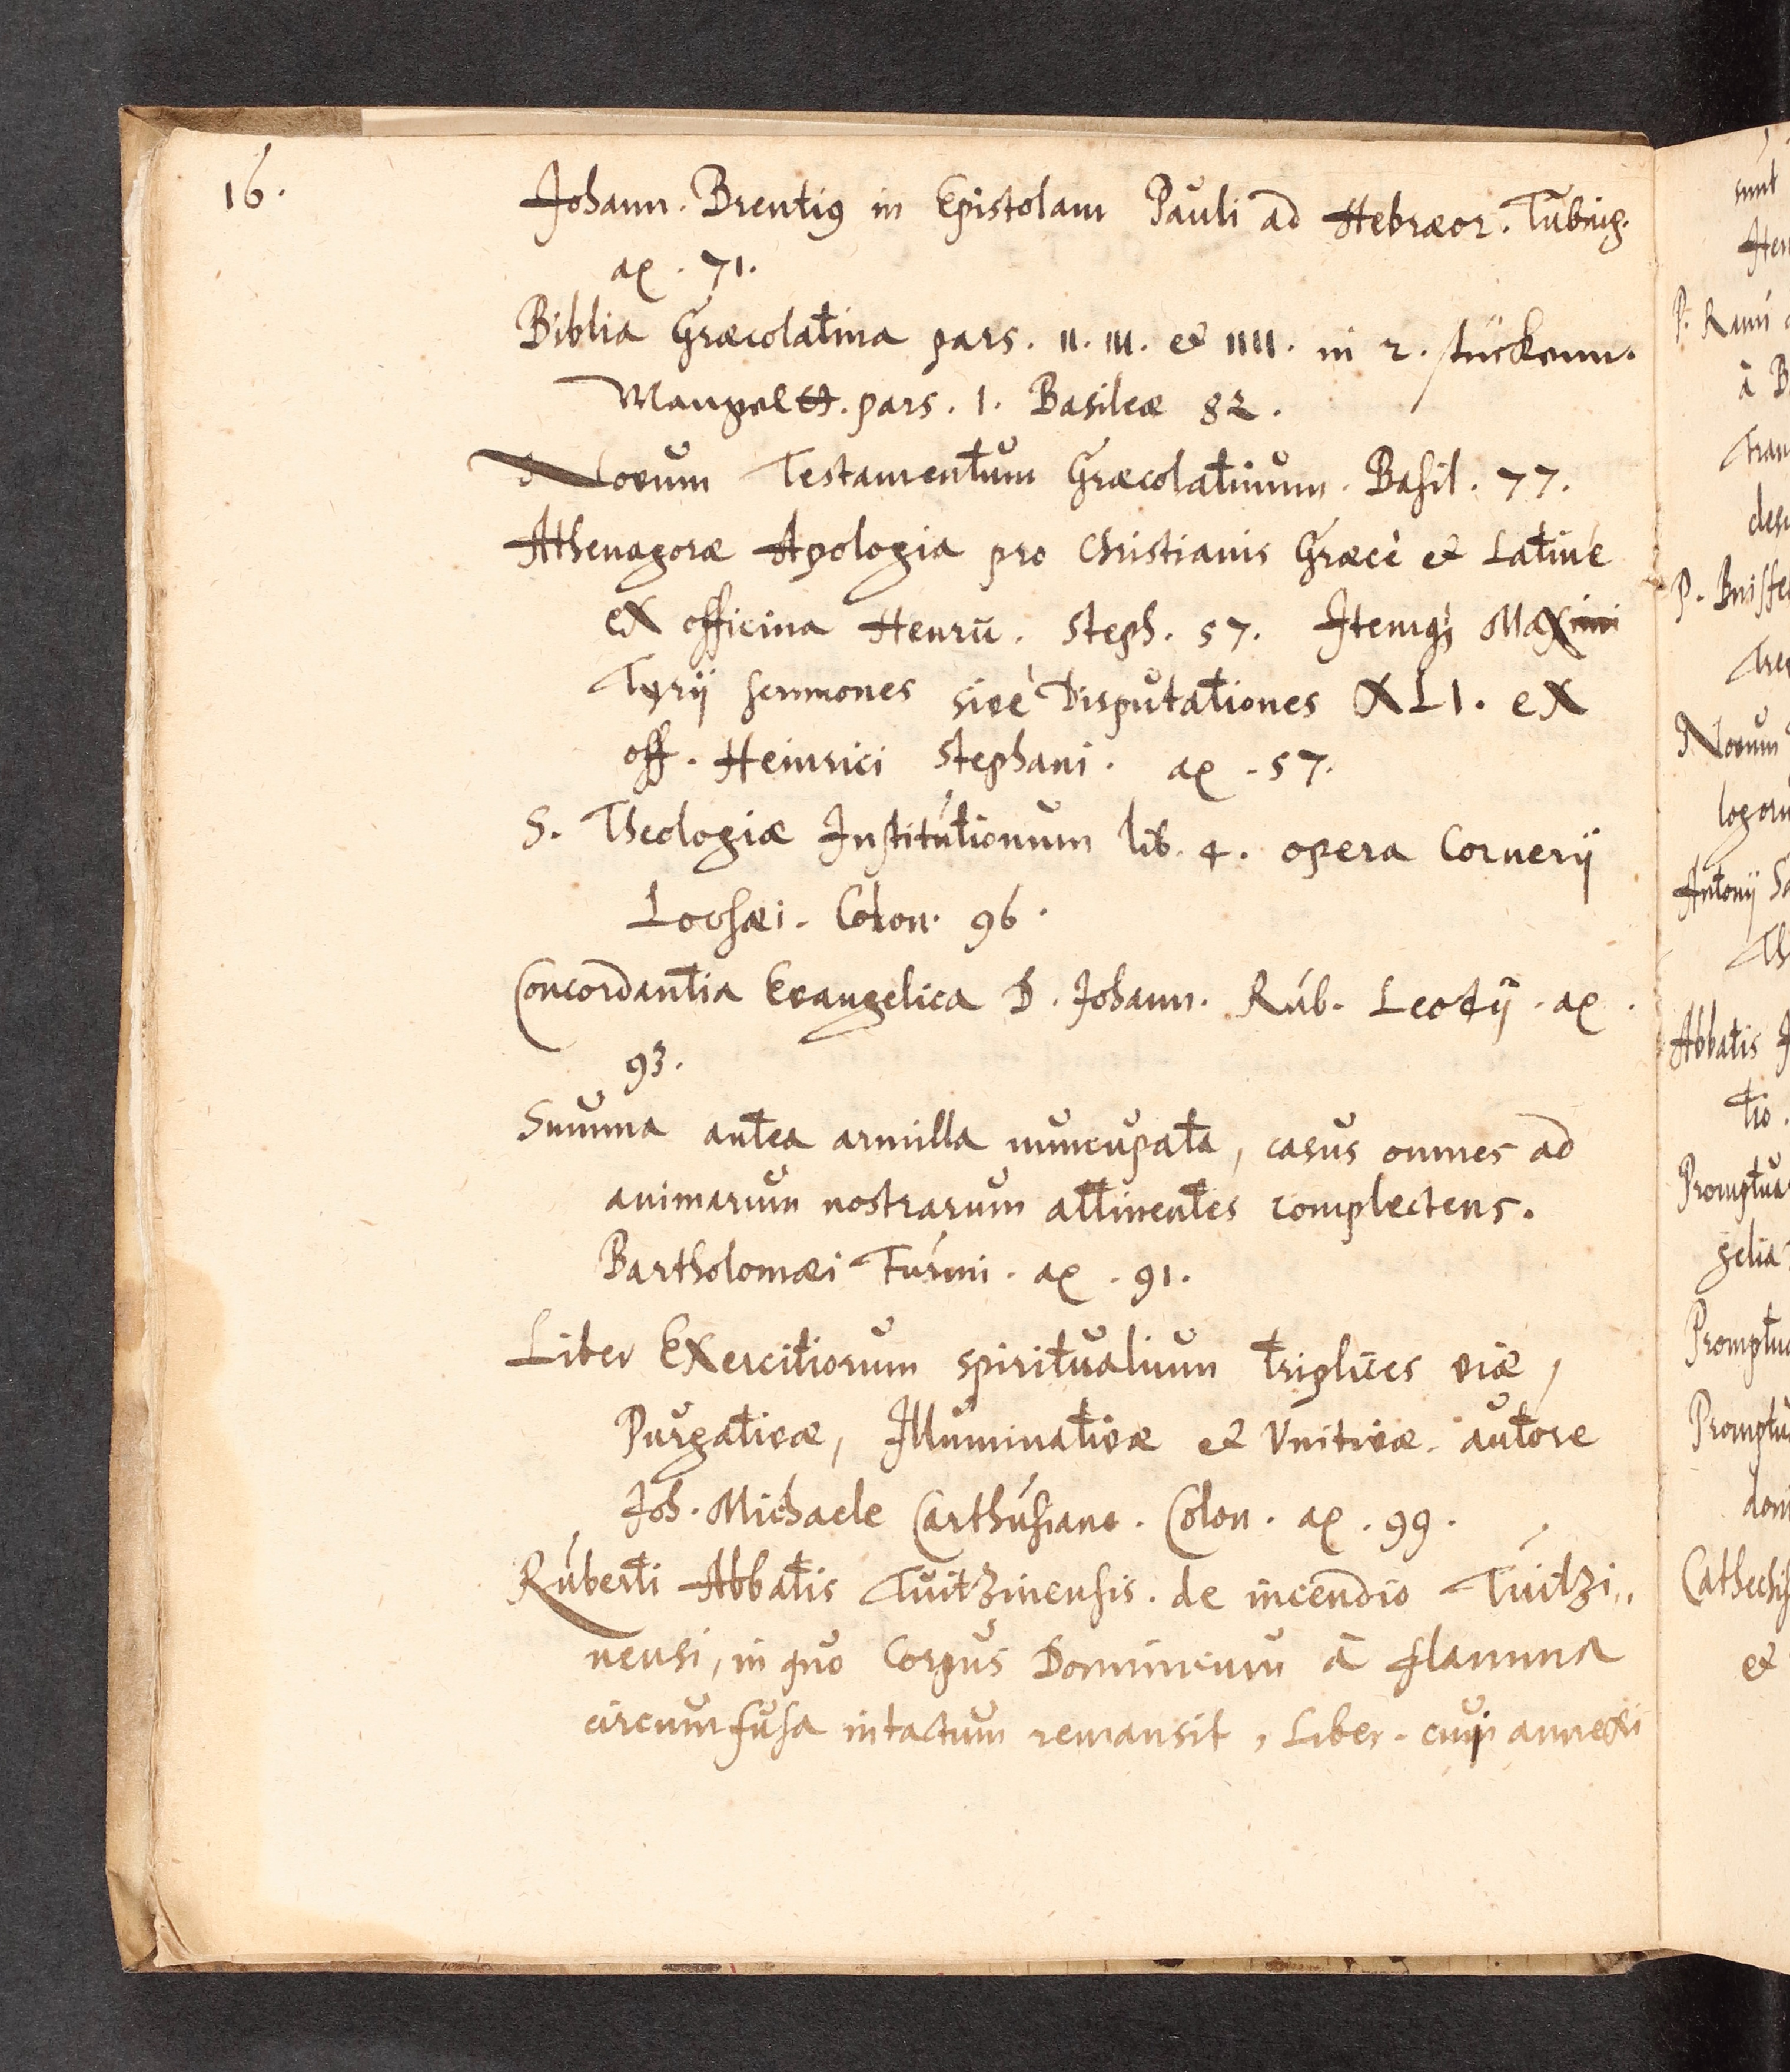 16.
Johann. Brentiꝰ in Epistolam Pauli ad Hebræor. Tubing.
aͤ. 71.
Biblia Græcolatina pars. II. III. et IIII. in 2. stückenn.
Mangelt. pars. 1. Basileæ 82.
Novum Testamentum Græcolatinum. Basil. 77.
Athenagoræ Apologia pro Christianis Græcè et Latinè
ex officina Henrii. Steph. 57. Itemqꝫ Maximi
Tyrij sermones sivè Disputationes XLI. ex
off. Heinrici Stephani. aͤ. 57.
S. Theologiæ Institutionum lib. 4. opera Cornerij
Lovsæi. Colon. 96.
Concordantia Evangelica D. Johann. Rúb. Leodij. aͤ.
93.
Summa antea armilla nuncupata, casus omnes ad
animarum nostrarum attinentes complectens.
Bartholomæi Fúmi. aͤ. 91.
Liber Exercitiorum spiritualium triplices viæ,
Purgativæ, Illuminativæ et Vnitivæ. autore
Joh. Michaele Carthúsiano. Colon. aͤ. 99.
Rúberti Abbatis Tuitzinensis. de incendio Túitzi„
nensi, in quo Corpus Dominicum à flamma
circumfusa intactum remansit, Liber. cui annexi
sunt
P. Ramí
à B
P. Buisse
Novum
Antonij Sa
Abbatis
tio.
Promptua
gelia
Promptua
Promptu
Cathechis
et